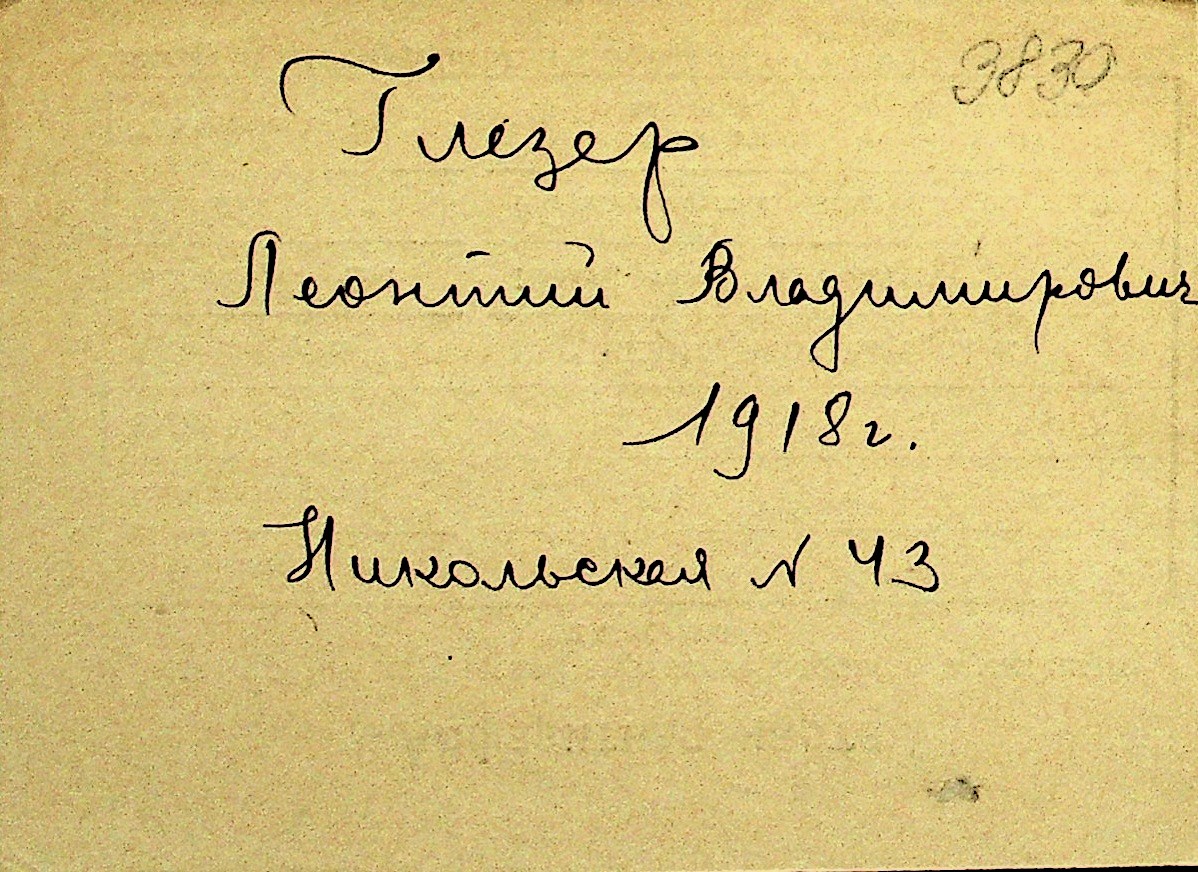 3830
Глезер
Леонтий Владимирович
1918 г.
Никольская № 43